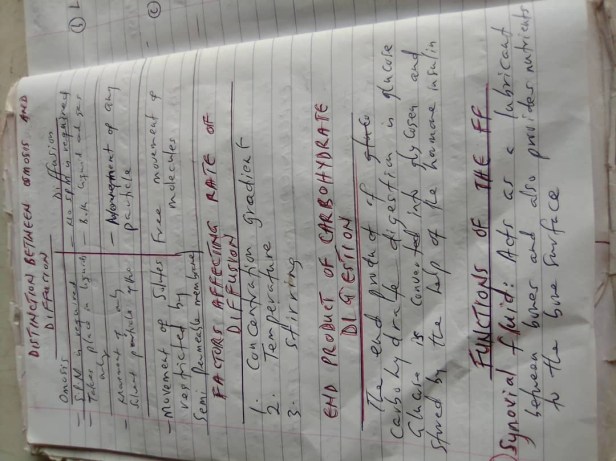 DISTINCTION BETWEEN OSMOSIS AND
DIFFUSION
Osmosis
Diffusion
- SPM is required
- No SPM is required
- Takes place in liquids
only
- Both liquid and gas
- Movement of only
- Movement of any
particle
- Movement of Solutes
restricted by
Semi Permeable membrane
Free movement of
molecules
FACTORS AFFECTING RATE OF
DIFFUSION
1. Concentration gradient
2. Temperature
3. Stirring
END PRODUCT OF CARBOHYDRATE
DIGESTION
The end product of
carbohydrate digestion is glucose
Glucose is converted into glycogen and
stored by the help of the hormone insulin
FUNCTIONS OF THE FF
Synovial fluid: Acts as a lubricant
between bones and also provides nutrients
to the bone surface